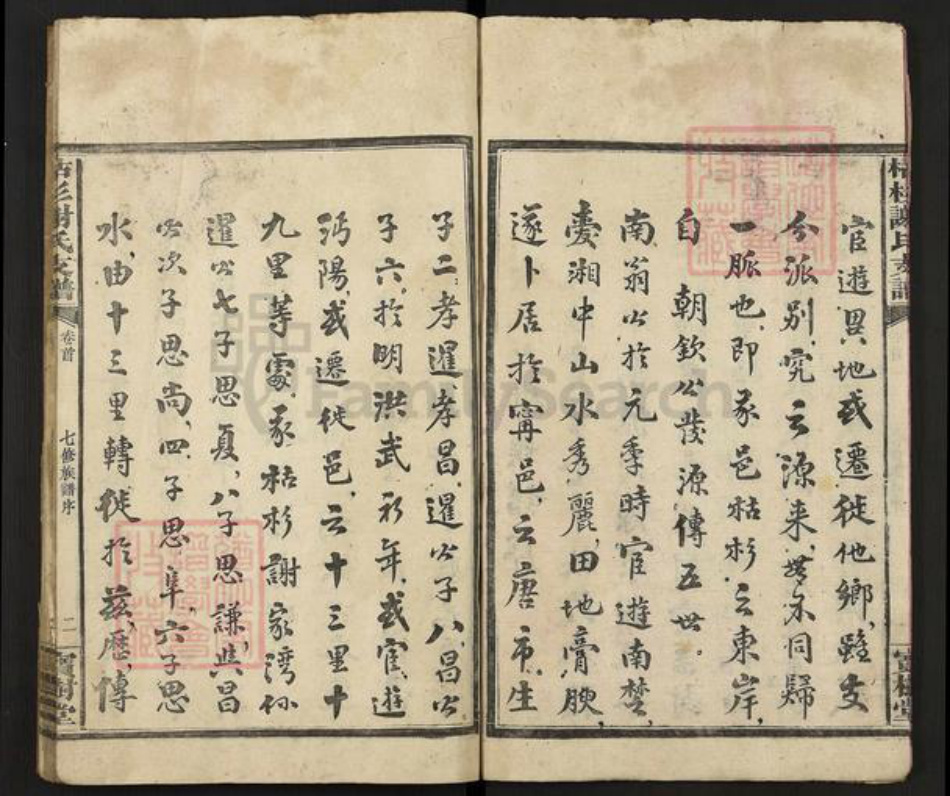 枯杉謝氏支譜
寶樹堂
官遊異地或遷徙他鄉,雖支
分派別,究云源来,無不同歸
一脈也,即我邑枯杉云東岸,
自 朝欽公發源傳五世。
南翁公於元季時官遊南楚,
愛湘中山水秀麗,田地膏腴,
遂卜居於寧邑,云唐市,生
子二,孝暹,孝昌,暹公子八,昌公
子六,於明洪武初年,或宦遊
沔陽,或遷徙邑,云十三里十
九里等處,我枯杉謝家灣係
暹公七子思夏,八子思謙,與昌
公次子思尚,四子思阜,六子思
水,由十三里轉徙於茲,歷傳
枯杉謝氏支譜
卷首
七修族譜序
二
寶樹堂
FamilySearch